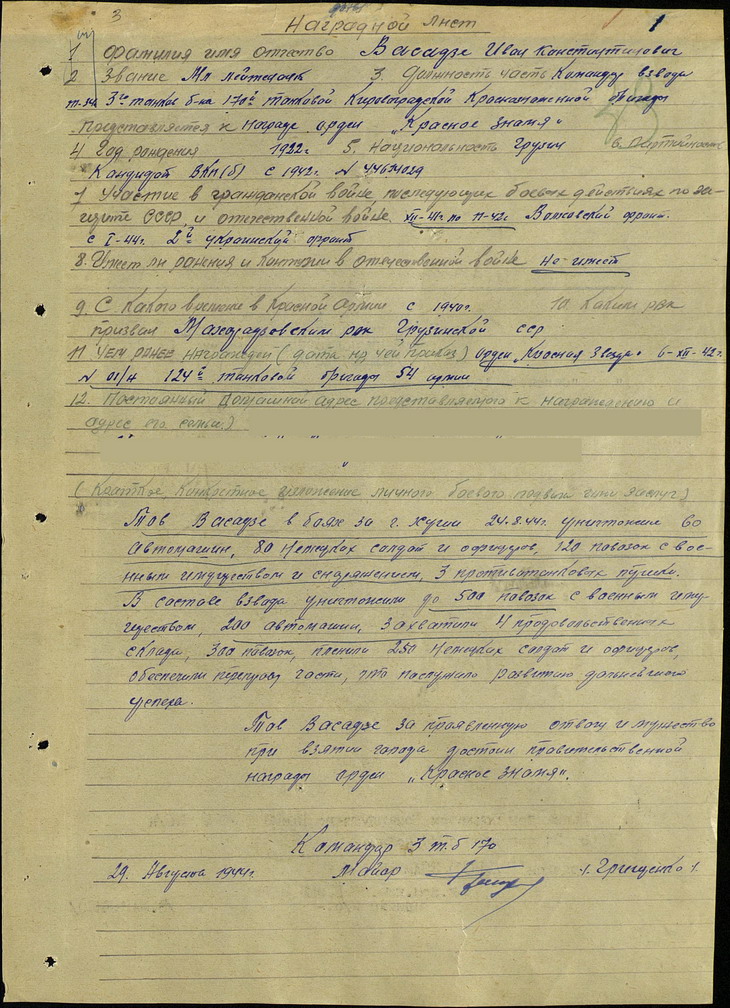 3
1
Наградной лист
1 Фамилия имя отчество Васадзе Иван Константинович
2 Звание Мл лейтенант 3. Должность часть Командир взвода
т-34 3го танков б-на 170й танковой Кировоградской Краснознаменной бригады
Представляется к награде орден „Красное знамя"
4 Год рождения 1922г 5. Национальность Грузин 6. Партийность
Кандидат ВКП(б) с 1942г. N 4463029
7 Участие в гражданской войне, последующих боевых действиях по за-
щите СССР и отечественной войне XII-41г по 11-42г Волховский фронт.
с I-44г. 2й украинский фронт
8. Имеет ли ранения и контузии в отечественной войне не имеет
9. С какого времени в Красной армии с 1940г. 10. Каким рвк
призван Махарадзовским рвк Грузинской сср
11. Чем ранее награжден (дата и чей приказ) орден Красная Звезда 6-XII-42г.
N 01/н 124й танковой бригады 54 армии
12. Постоянный домашний адрес представляемого к награждению и
адрес его семьи.)
(Краткое, конкретное изложение личного боевого подвига или заслуг)
Тов Васадзе в боях за г. Хуши 24.8.44г. уничтожил 60
автомашин, 80 немецких солдат и офицеров, 120 повозок с вое-
нным имуществом и снаряжением, 3 противотанковых пушки.
В составе взвода уничтожили до 500 повозок с военным иму-
ществом, 200 автомашин, захватили 4 продовольственных
склада, 300 повозок, пленили 250 немецких солдат и офицеров,
обеспечили переправу части, что послужило развитию дальнейшего
успеха.
Тов Васадзе за проявленную отвагу и мужество
при взятии города достоин правительственной
награды орден „Красное знамя".
Командир 3 т.б 170
29. Августа 1944г. Майор /. Грищенко /.